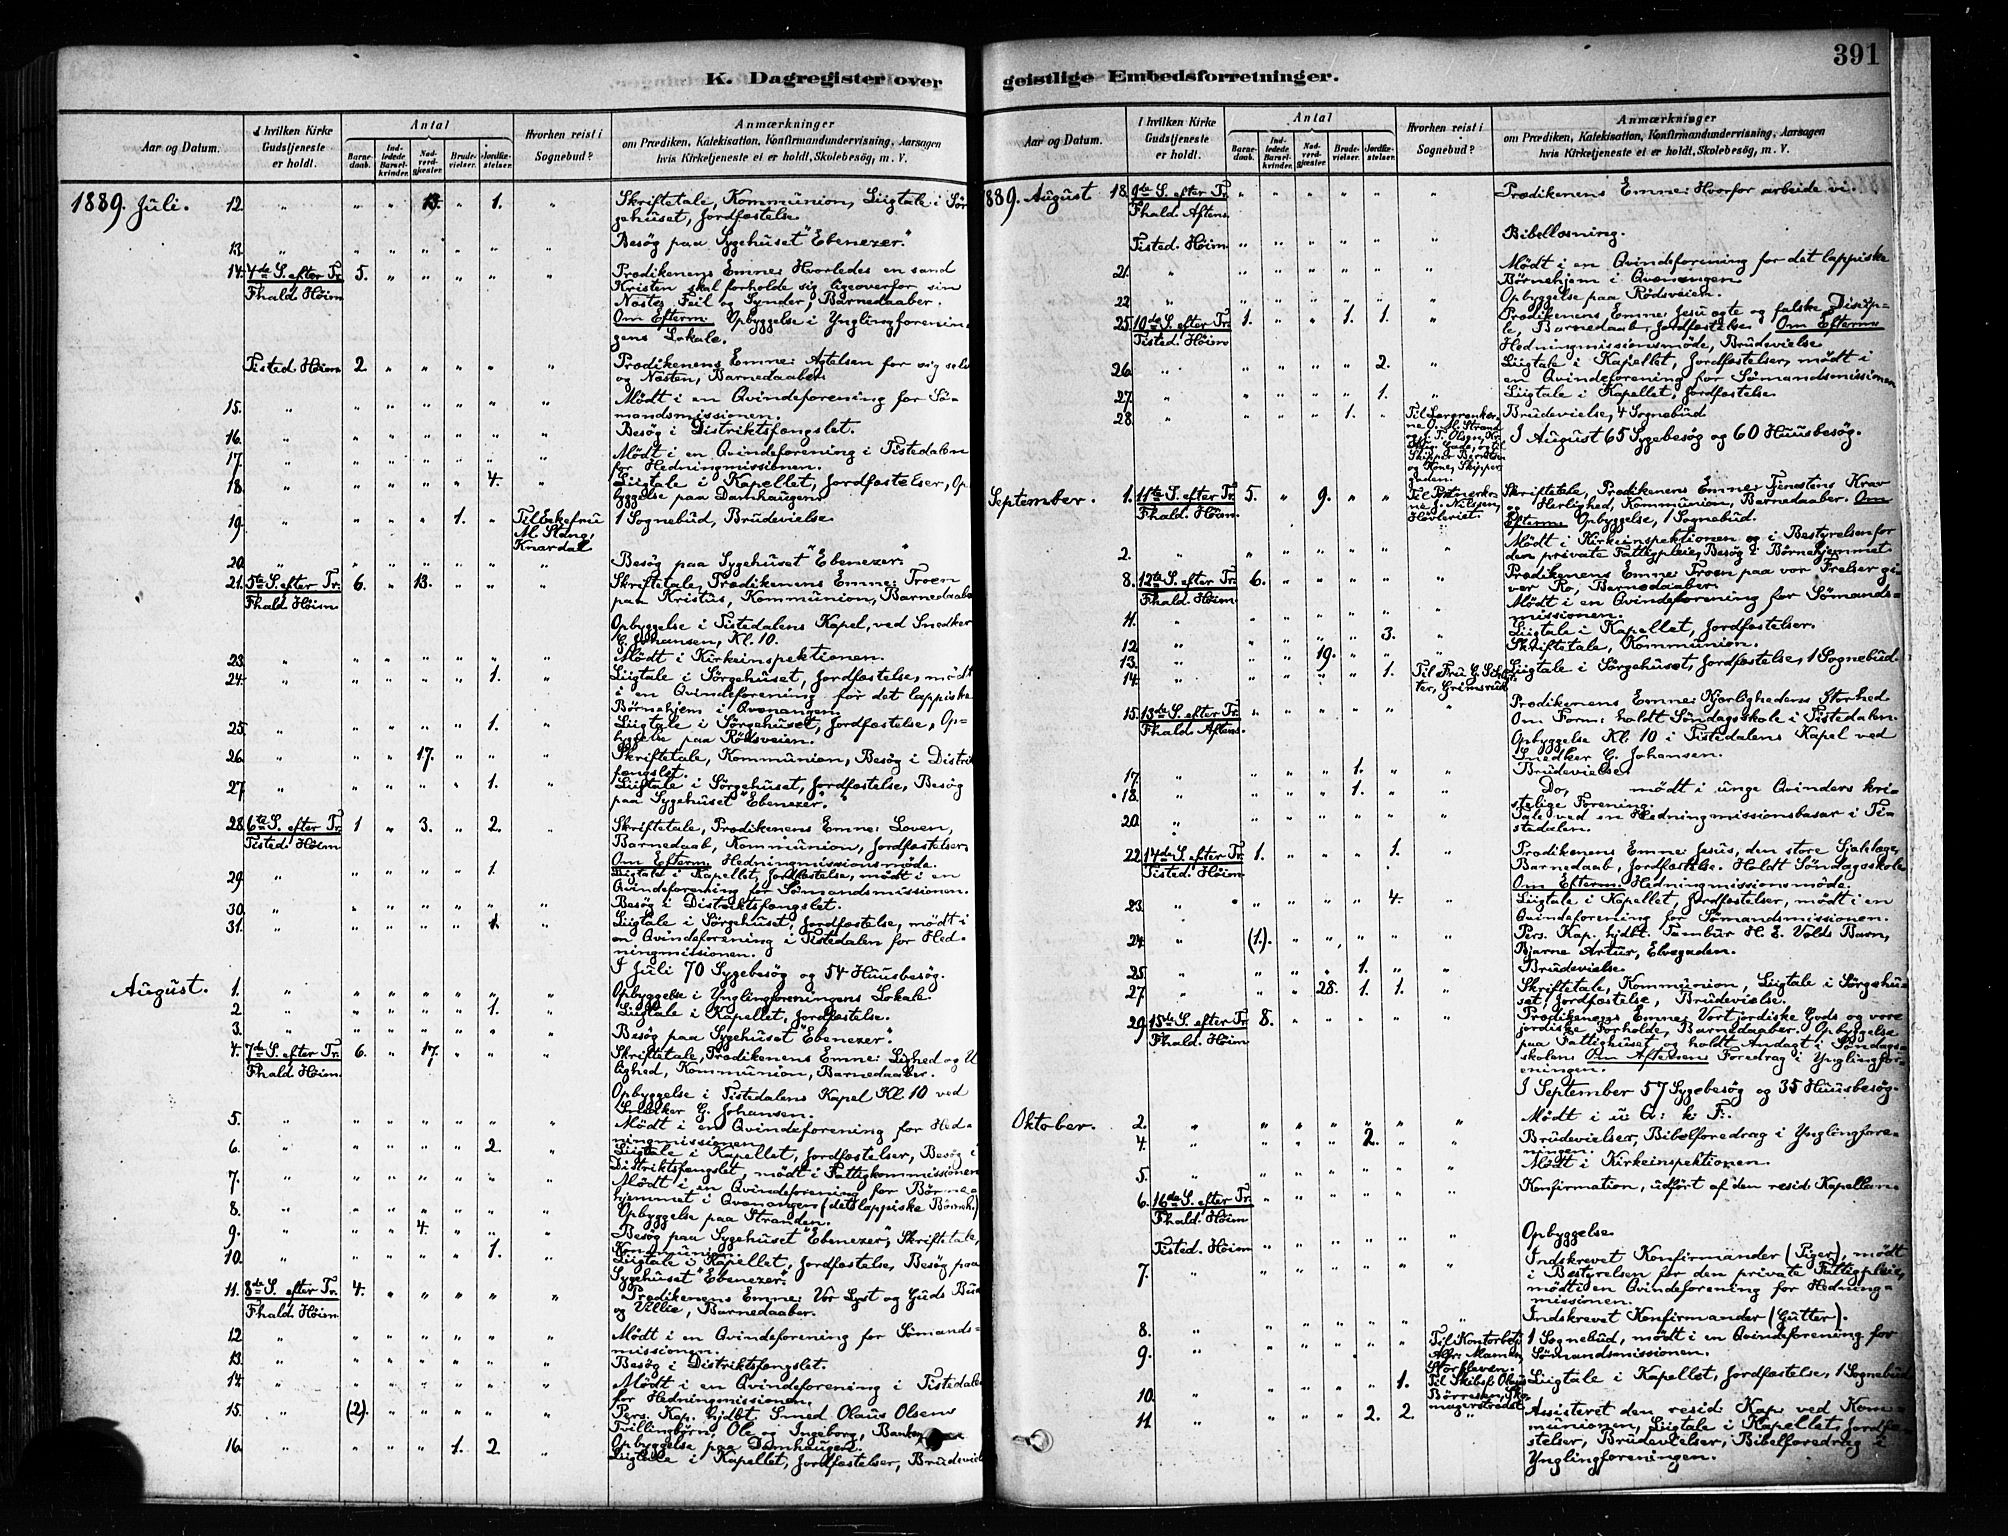 K. Dagregister over
Aar og Datum.
I hvilken Kirke Gudstjeneste er holdt.
Antal
Barnedaab.
Indledede Barselkvinder.
Nadverdgjæster.
Brudevielser.
Jordfæstelser.
Hvorhen reist i Sognebud?
Anmærkninger
om Prædiken, Katekisation, Konfirmandundervisning, Aarsagen
hvis Kirketjeneste ei er holdt, Skolebesøg, m. V.
1889. Juli. 12. " " " 13. " 1. " Skriftetale, Kommunion, Liigtale i Sør-
gehuset, Jordfæstelse.
13. " " " " " " " Besøg paa Sygehuset "Ebenezer."
14. 4de S. efter Tr. 5. " " " " " Prædikenens Emne: Hvorledes en sand
Fhald. Høim. Kristen skal forholde sig ligeoverfor sin
Næstes Feil og Synder, Barnedaaber.
Om Efterm. Opbyggelse i Ynglingforenin-
gens Lokale.
Tisted. Høim. 2 " " " " " Prædikenens Emne: Agtelsen for sig selv
og Næsten, Barnedaaber.
15. " " " " " " " Mødt i en Qvindeforening for Sø-
mandsmissionen.
16. " " " " " " " Besøg i Distriktsfængslet.
17. " " " " " " " Mødt i en Qvindeforening i Tistedalen
for Hedningmissionen.
18. " " " " " 4. " Liigtale i Kapellet, Jordfæstelser, Op-
byggelse paa Damhaugen.
19. " " " " 1. " Til Enkefru 1 Sognebud, Brudevielse
M. Stang,
Knardal
20. " " " " " " " Besøg paa Sygehuset "Ebenezer."
21. 5te S. efter Tr. 6. " 13. " " " Skriftetale, Prædikenens Emne: Troen
Fhald. Høim. paa Kristus, Kommunion, Barnedaaber
Opbyggelse i Tistedalens Kapel, ved Snedker
G. Johansen, Kl. 10.
23. " " " " " " " Mødt i Kirkeinspektionen.
24. " " " " " 1. " Liigtale i Sørgehuset, Jordfæstelse, mødt
i en Qvindeforening for det lappiske
Børnehjem i Qvænangen.
25. " " " " " 1. " Liigtale i Sørgehuset, Jordfæstelse, Op-
byggelse paa Rødsveien.
26. " " " 17. " " " Skriftetale, Kommunion, Besøg i Distrikts-
fængslet.
27. " " " " " 1. " Liigtale i Sørgehuset, Jordfæstelse, Besøg
paa Sygehuset "Ebenezer."
28. 6te S. efter Tr. 1 " 3. " 2. " Skriftetale, Prædikenens Emne: Loven,
Tisted. Høim. Barnedaab, Kommunion, Jordfæstelser.
Om Efterm. Hedningmissionsmøde.
29. " " " " " 1. " Liigtale i Kapellet, Jordfæstelse, mødt i en
Qvindeforening for Sømandsmissionen.
30. " " " " " " " Besøg i Distriktsfængslet.
31. " " " " " 1. " Liigtale i Sørgehuset, Jordfæstelse, mødt i
en Qvindeforening i Tistedalen for Hed-
ningmissionen.
I Juli 70 Sygebesøg og 54 Huusbesøg.
August. 1. " " " " " " " Opbyggelse i Ynglingforeningens Lokale.
2 " " " " " 1. " Liigtale i Kapellet, Jordfæstelse.
3. " " " " " " " Besøg paa Sygehuset "Ebenezer."
4. 7de S. efter Tr. 6. " 17. " " " Skriftetale, Prædikenens Emne: Lighed og U-
Fhald. Høim. lighed, Kommunion, Barnedaaber.
Opbyggelse i Tistedalens Kapel Kl 10 ved
Snedker G. Johansen.
5. " " " " " " " Mødt i en Qvindeforening for Hed-
ningmissionen.
6. " " " " " 2. " Liigtale i Kapellet, Jordfæstelser, Besøg i
Distriktsfængslet, mødt i Fattigkommissionen
7. " " " " " " " Mødt i en Qvindeforening for Børne-
hjemmet i Qvænangen (det lappiske Børneh.)
8. " " " " " " " Opbyggelse paa Stranden.
9. " " " 4. " " " Besøg paa Sygehuset "Ebenezer", Skriftetale,
Kommunion.
10. " " " " " 1. " Liigtale i Kapellet, Jordfæstelse, Besøg paa
Sygehuset "Ebenezer."
11. 8de S. efter Tr. 4. " " " " " Prædikenens Emne: Vor Lyst og Guds Bud
Fhald. Høim. og Villie, Barnedaaber.
12 " " " " " " " Mødt i en Qvindeforening for Sømands-
missionen.
13. " " " " " " " Besøg i Distriktsfængslet.
14 " " " " " " " Mødt i en Qvindeforening i Tistedalen
for Hedningmissionen.
15. " (2). " " " " " Pers. Kap. hjdbt. Smed Olaus Olsens
Tvillingbørn, Ole og Ingeborg, Banken
16. " " " " 1. 2. " Opbyggelse paa Damhaugen.
Liigtale i Kapellet, Jordfæstelser, Brudevielse
geistlige Embedsforretninger.
391
Aar og Datum.
I hvilken Kirke Gudstjeneste er holdt.
Antal
Barnedaab.
Indledede Barselkvinder.
Nadverdgjæster.
Brudevielser.
Jordfæstelser.
Hvorhen reist i Sognebud?
Anmærkninger
om Prædiken, Katekisation, Konfirmandundervisning, Aarsagen
hvis Kirketjeneste ei er holdt, Skolebesøg, m. V.
1889. August 18. 9de S. efter Tr. " " " " " " Prædikenens Emne: Hvorfor arbeide vi.
Fhald. Aftens.
Tisted. Høim " " " " " " Bibellæsning.
21. " " " " " " " Mødt i en Qvindeforening for det lappiske
Børnehjem i Qvænangen
22 " " " " " " " Opbyggelse paa Rødsveien.
25. 10de S. efter Tr. 1. " " 1. 1. " Prædikenens Emne: Jesu ægte og falske Discip-
Tisted. Høim le, Barnedaab, Jordfæstelse. Om Efterm.
Hedningmissionsmøde, Brudevielse
26. " " " " " 2. " Liigtale i Kapellet, Jordfæstelser, mødt i
en Qvindeforening for Sømandsmissionen
27. " " " " " 1. " Liigtale i Kapellet, Jordfæstelse.
28. " " " " 1. " Brudevielse, 4 Sognebud
I August 65 Sygebesøg og 60 Huusbesøg.
September. 1. 11te S. efter Tr. 5. " 9. " " Skriftetale, Prædikenens Emne: Tjenestens Krav
Fhald. Høim. og Herlighed, Kommunion, Barnedaaber. Om
Efterm. Opbyggelse, 1 Sognebud.
2. " " " " " " " Mødt i Kirkeinspektionen og i Bestyrelsen for
den private Fattigpleie, Besøg i Børnehjemmet
8. 12te S. efter Tr. 6. " " " " " Prædikenens Emne: Troen paa vor Frelser gi-
Fhald. Høim. ver Ro, Barnedaaber.
11. " " " " " " " Mødt i en Qvindeforening for Sømands-
missionen.
12 " " " " " 3. " Liigtale i Kapellet, Jordfæstelser.
13. " " " 19. " " Skriftetale, Kommunion.
14. " " " " " 1. Til Fru G. Liigtale i Sørgehuset, Jordfæstelse, 1 Sognebud.
Grimsrud
15. 13de S. efter Tr. " " " " " " Prædikenens Emne: Kjærlighedens Storhed
Fhald. Aftens. Om Form: holdt Søndagsskole i Tistedalen.
Opbyggelse Kl. 10 i Tistedalens Kapel ved
Snedker G. Johansen.
17. " " " " 1. " " Brudevielse.
18. " " " " 1. " " Do, mødt i unge Qvinders kri-
stelige Forening.
20. " " " " " " " Tale ved en Hedningmissionsbasar i Ti-
stedalen.
22 14de S. efter Tr. 1. " " " 1. " Prædikenens Emne: Jesus, den store
Tisted. Høim Barnedaab, Jordfæstelse. Holdt Søndagsskole
Om Efterm. Hedningmissionsmøde.
23. " " " " " 4. " Liigtale i Kapellet, Jordfæstelser, mødt i en
Qvindeforening for Sømandsmissionen.
24 " (1). " " " " " Pers. Kap. hjdbt. Tambur H. E. Volds Barn,
Bjarne Artur, Elvegaden.
25. " " " " 1. " " Brudevielse.
27. " " " 28. 1. 1. " Skriftetale, Kommunion, Liigtale i Sørgehu-
set, Jordfæstelse, Brudevielse.
29. 15de S. efter Tr. 8. " " " " " Prædikenens Emne: Vort jordiske Gods og vore
Fhald. Høim jordiske Forholde, Barnedaaber. Opbyggelse
paa Fattighuset og holdt Andagt i Søndags-
skolen. Om Aftenen Foredrag i Ynglingfor-
eningen.
I September 57 Sygebesøg og 35 Huusbesøg.
Oktober. 2. " " " " " " " Mødt i u. Q: k. F:
4. " " " " 2. " " Brudevielser, Bibelforedrag i Ynglingfore-
ningen.
5. " " " " " " " Mødt i Kirkeinspektionen.
6. 16de S. efter Tr. " " " " " " Konfirmation, udført af den resid. Kapellan.
Fhald. Høim
Tisted. Høim " " " " " " Opbyggelse
7. " " " " " " " Indskrevet Konfirmander (Piger), mødt
i Bestyrelsen for den private Fattigpleie,
mødt i en Qvindeforening for Hedning-
missionen.
8. " " " " " " " Indskrevet Konfirmander (Gutter).
9. " " " " " " Til Kontorbetj. 1 Sognebud, mødt i en Qvindeforening for
Sømandsmissionen.
10. " " " " " 1. Til Skibsf. Olaus Liigtale i Kapellet, Jordfæstelse, 1 Sognebud
Børresen, Sko-
magerstrædet
11. " " " " 2. 2. " Assisteret den resid. Kap. ved Kom-
munionen, Liigtale i Kapellet, Jordfæ-
stelser, Brudevielser, Bibelforedrag i
Ynglingforeningen.